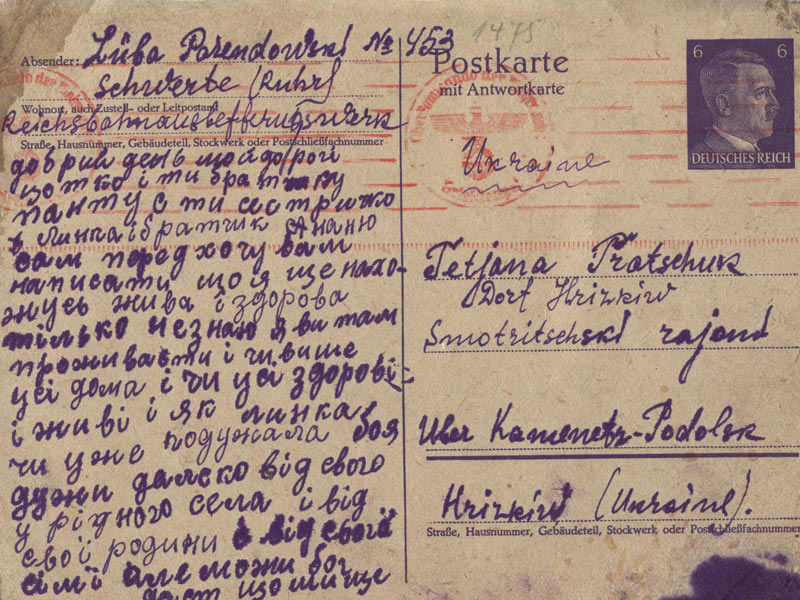 Absender: Lüba Parendowski № 453
Schwerte (Ruhr)
Wohnort, auch Zustell- oder Leitpostamt
Reichsbahnausbesserungswerk
Straße, Hausnummer, Gebäudeteil, Stockwerk oder Postschließfachnummer
добрий день мої дорогі
цотко і ти братіку
пантус ти сестричко
линка і братчик Ананю
сам перед хочу вам
написати що я ще нахо-
жусь жива і здорова
тілько незнаю я ви там
проживаєти і чи више
усі дома і чи усі здорові
і живі і як линка
чи уже подужала бо я
дужи далєко від свого
у рідного села і від
свої родини від свої
сімї але може бог
даст що ми ще
1475
Postkarte
mit Antwortkarte
6 6
DEUTSCHES REICH
Ukraine
Tetjana Pratschuk
Dorf Hrizkiw
Smotritschski rajond
Uber Kamenetz-Podolsk
Hrizkiw (Ukraine).
Straße, Hausnummer, Gebäudeteil, Stockwerk oder Postschließfachnummer